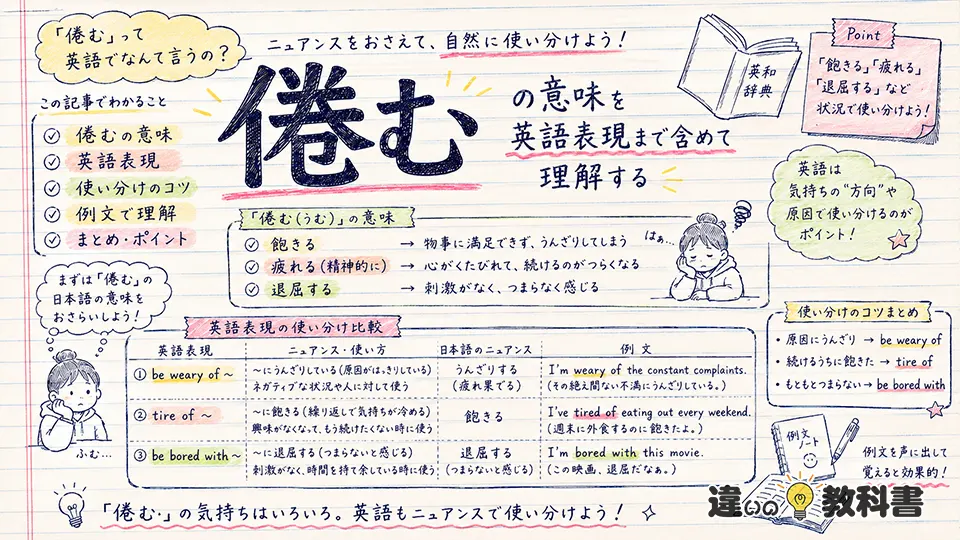 「倦む」って
英語でなんて言うの?
ニュアンスをおさえて、自然に使い分けよう!
倦む
の意味を
英語表現まで含めて
理解する
英和
辞典
Point
「飽きる」「疲れる」
「退屈する」など
状況で使い分けよう!
この記事でわかること
倦むの意味
英語表現
使い分けのコツ
例文で理解
まとめ・ポイント
英語は
気持ちの“方向”や
原因で使い分けるのが
ポイント!
「倦む(うむ)」の意味
飽きる → 物事に満足できず、うんざりしてしまう
疲れる(精神的に) → 心がくたびれて、続けるのがつらくなる
退屈する → 刺激がなく、つまらなく感じる
はぁ…
まずは「倦む」の
日本語の意味を
おさらいしよう!
ふむ…
英語表現の使い分け比較
英語表現 ニュアンス・使い方 日本語のニュアンス 例文
① be weary of ~ ~にうんざりしている(原因がはっきりしている) うんざりする I'm weary of the constant complaints.
ネガティブな状況や人に対して使う (疲れ果てる) (その絶え間ない不満にうんざりしている。)
② tire of ~ ~に飽きる(繰り返しで気持ちが冷める) 飽きる I've tired of eating out every weekend.
興味がなくなって、もう続けたくない時に使う (週末に外食するのに飽きたよ。)
③ be bored with ~ ~に退屈する(つまらないと感じる) 退屈する I'm bored with this movie.
刺激がなく、時間を持て余している時に使う (つまらないと感じる) (この映画、退屈だなぁ。)
使い分けのコツまとめ
・原因にうんざり → be weary of
・続けるうちに飽きた → tire of
・もともとつまらない → be bored with
例文
ノート
例文を声に出して
覚えると効果的!
「倦む·」の気持ちはいろいろ。英語もニュアンスで使い分けよう!
違いの教科書